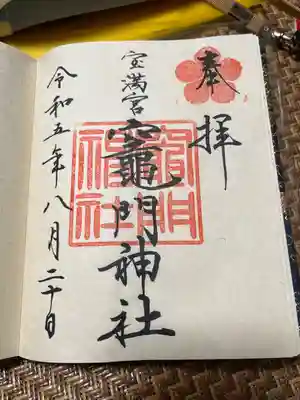 奉拝
宝満宮
竈門神社
令和五年八月二十日
竈門神社